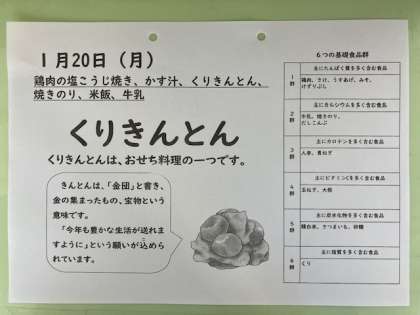 1月20日（月）
鶏肉の塩こうじ焼き、かす汁、くりきんとん、
焼きのり、米飯、牛乳
くりきんとん
くりきんとんは、おせち料理の一つです。
きんとんは、「金団」と書き、
金の集まったもの、宝物という
意味です。
「今年も豊かな生活が送れま
すように」という願いが込めら
れています。
6つの基礎食品群
1群
主にたんぱく質を多く含む食品
鶏肉、さけ、うすあげ、みそ、
けずりぶし
2群
主にカルシウムを多く含む食品
牛乳、焼きのり、
だしこんぶ
3群
主にカロテンを多く含む食品
人参、青ねぎ
4群
主にビタミンCを多く含む食品
玉ねぎ、大根
5群
主に炭水化物を多く含む食品
精白米、さつまいも、砂糖
6群
主に脂質を多く含む食品
くり